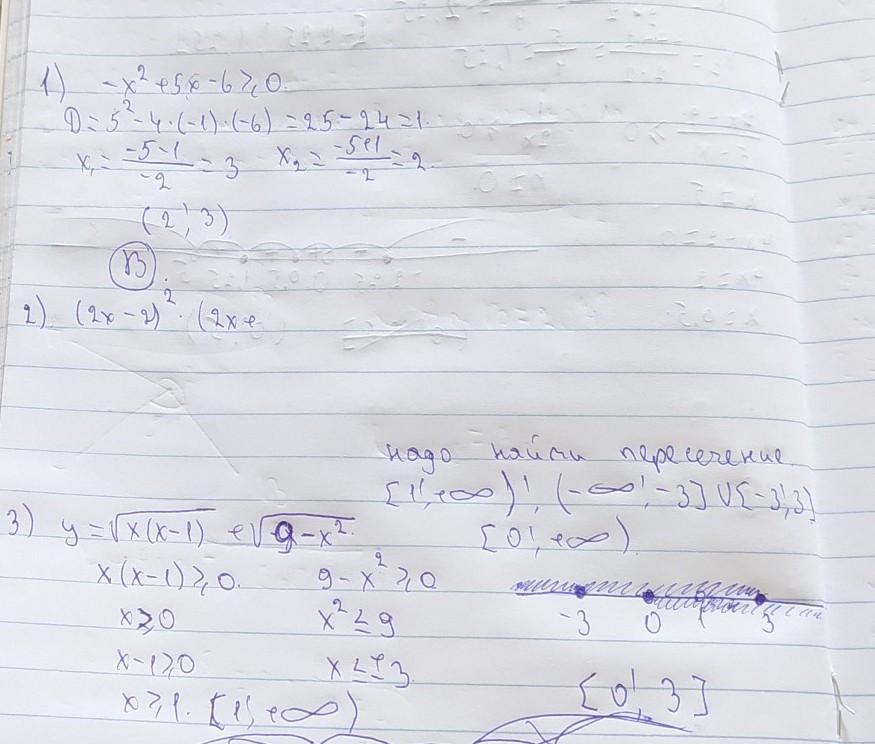 1) -x² + 5x - 6 ≥ 0.
D = 5² - 4·(-1)·(-6) = 25 - 24 = 1.
x₁ = (-5-1)/(-2) = 3 x₂ = (-5+1)/(-2) = 2.
(2; 3)
В.
2) (2x-2)² · (2x+
надо найти пересечение
[1; +∞); (-∞; -3] ∪ [-3; 3]
[0; +∞).
3) y = √(x(x-1)) + √(9-x²).
x(x-1) ≥ 0. 9-x² ≥ 0
x ≥ 0 x² ≤ 9
x-1 ≥ 0 x ≤ ±3
x ≥ 1. [1; +∞)
-3 0 1 3
[0; 3]